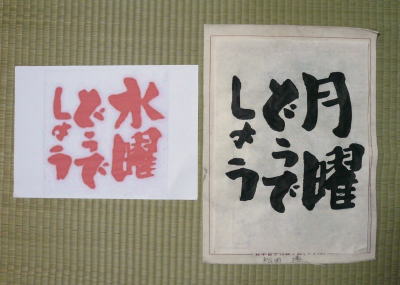 水曜
どうで
しょう
月曜
どうで
しょう